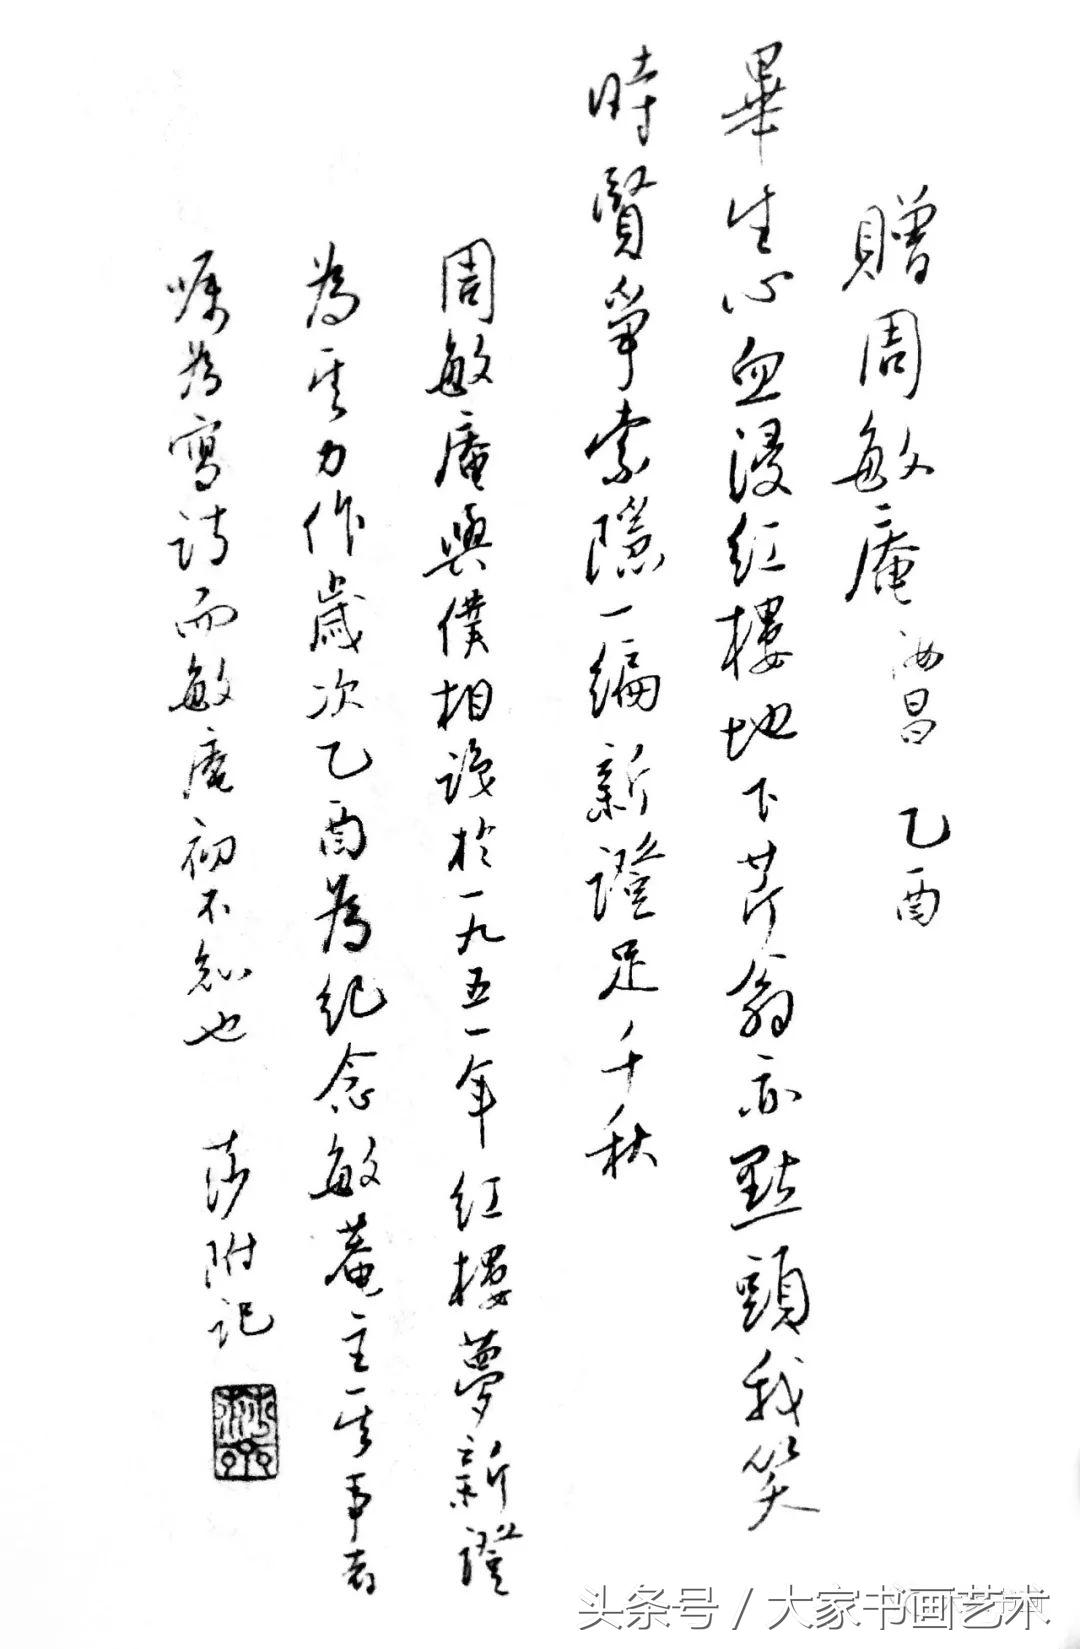 贈周敏庵 汝昌 乙酉
畢生心血浸紅樓地下芹翁亦點頭我笑
時賢爭索隱一编新證足千秋
周敏庵與僕相識於一九五一年紅樓夢新證
為其力作歲次乙酉為纪念敏菴主其事者
嘱為寫詩而敏庵初不知也 莎附记
头条号 / 大家书画艺术